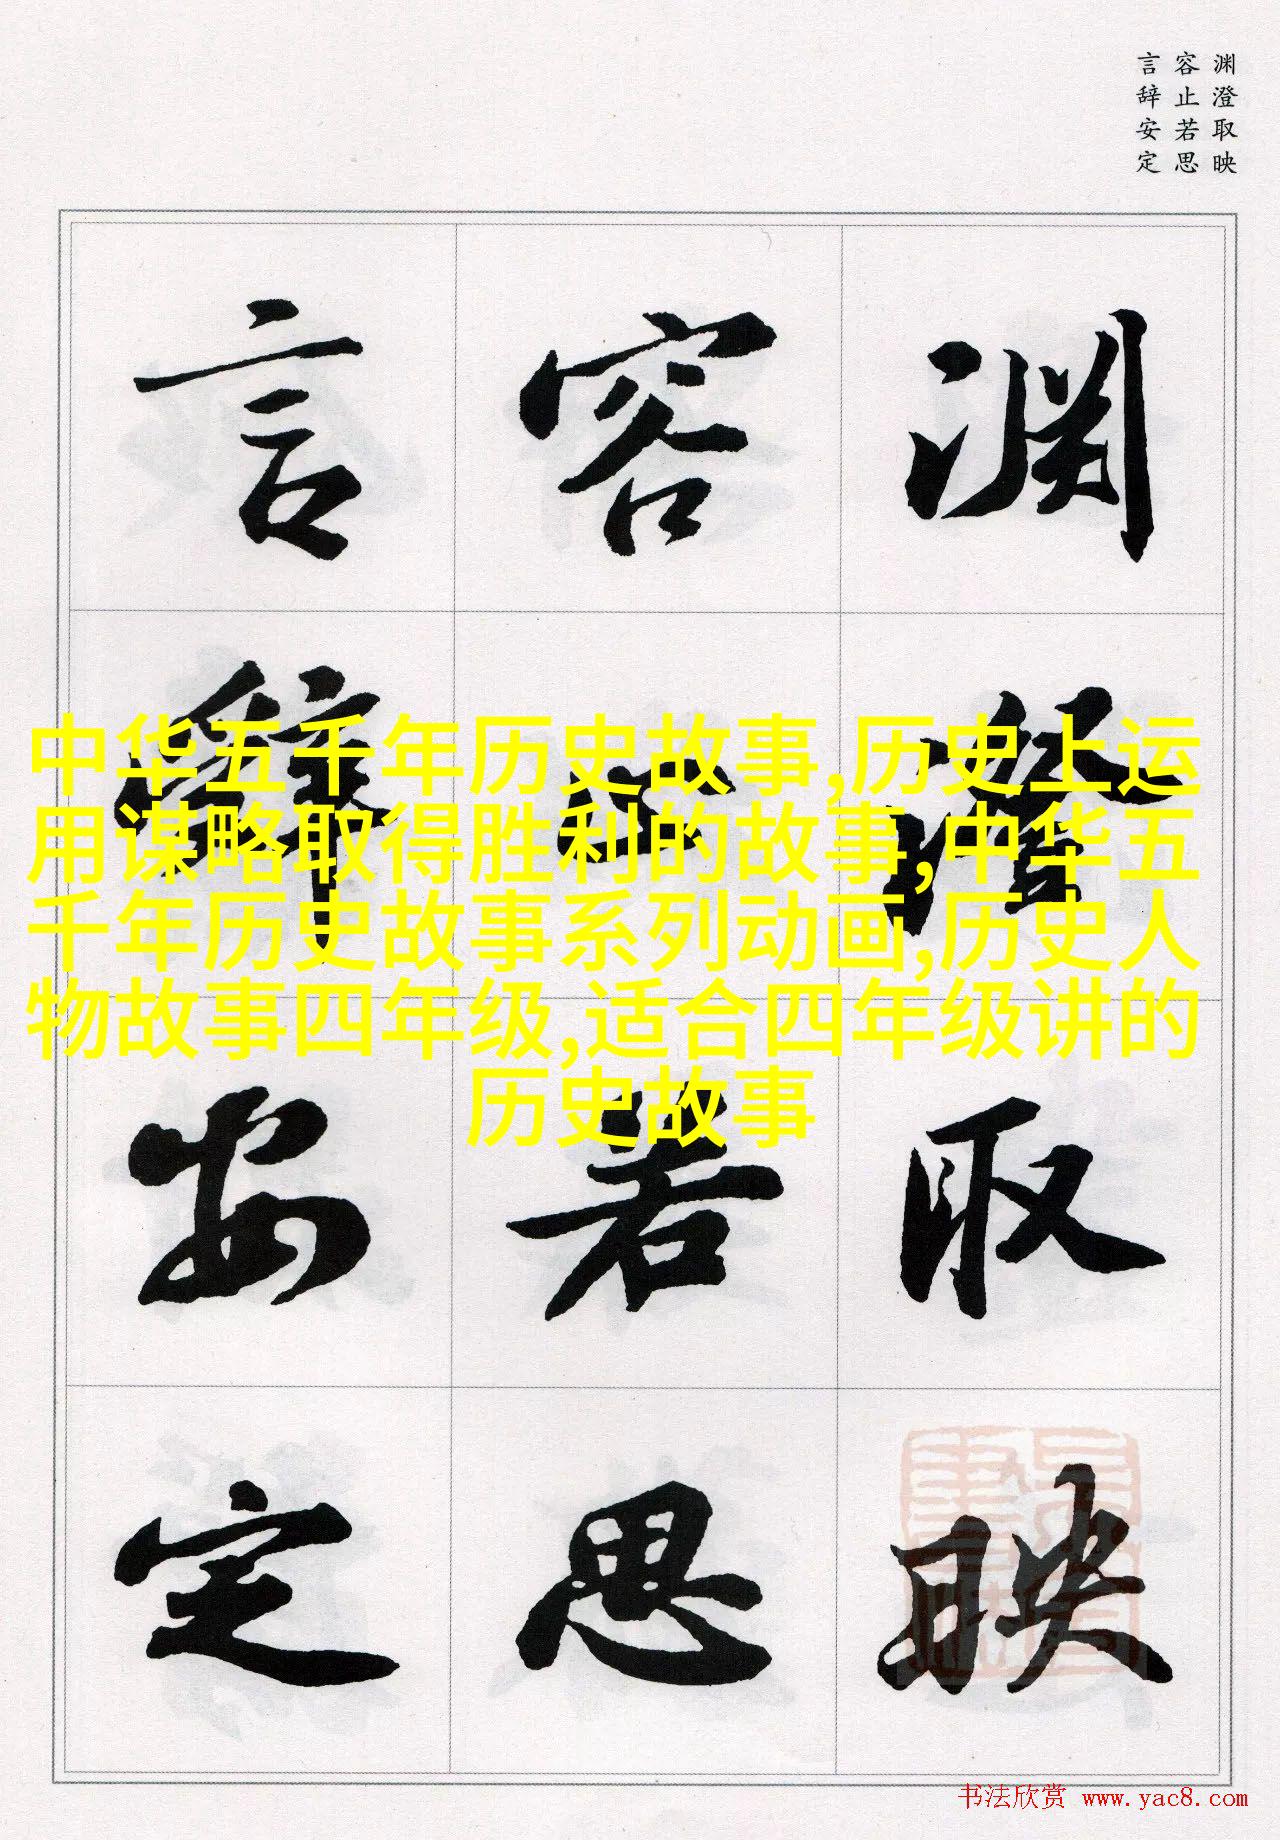 渊澄取映
容止若思
言辞安定
渊澄取映
容止若思
言辞安定
中华五千年历史故事,历史上运
用谋略取得胜利的故事,中华五
千年历史故事系列动画,历史人
物故事四年级,适合四年级讲的
历史故事
书法欣赏 www.yac8.com